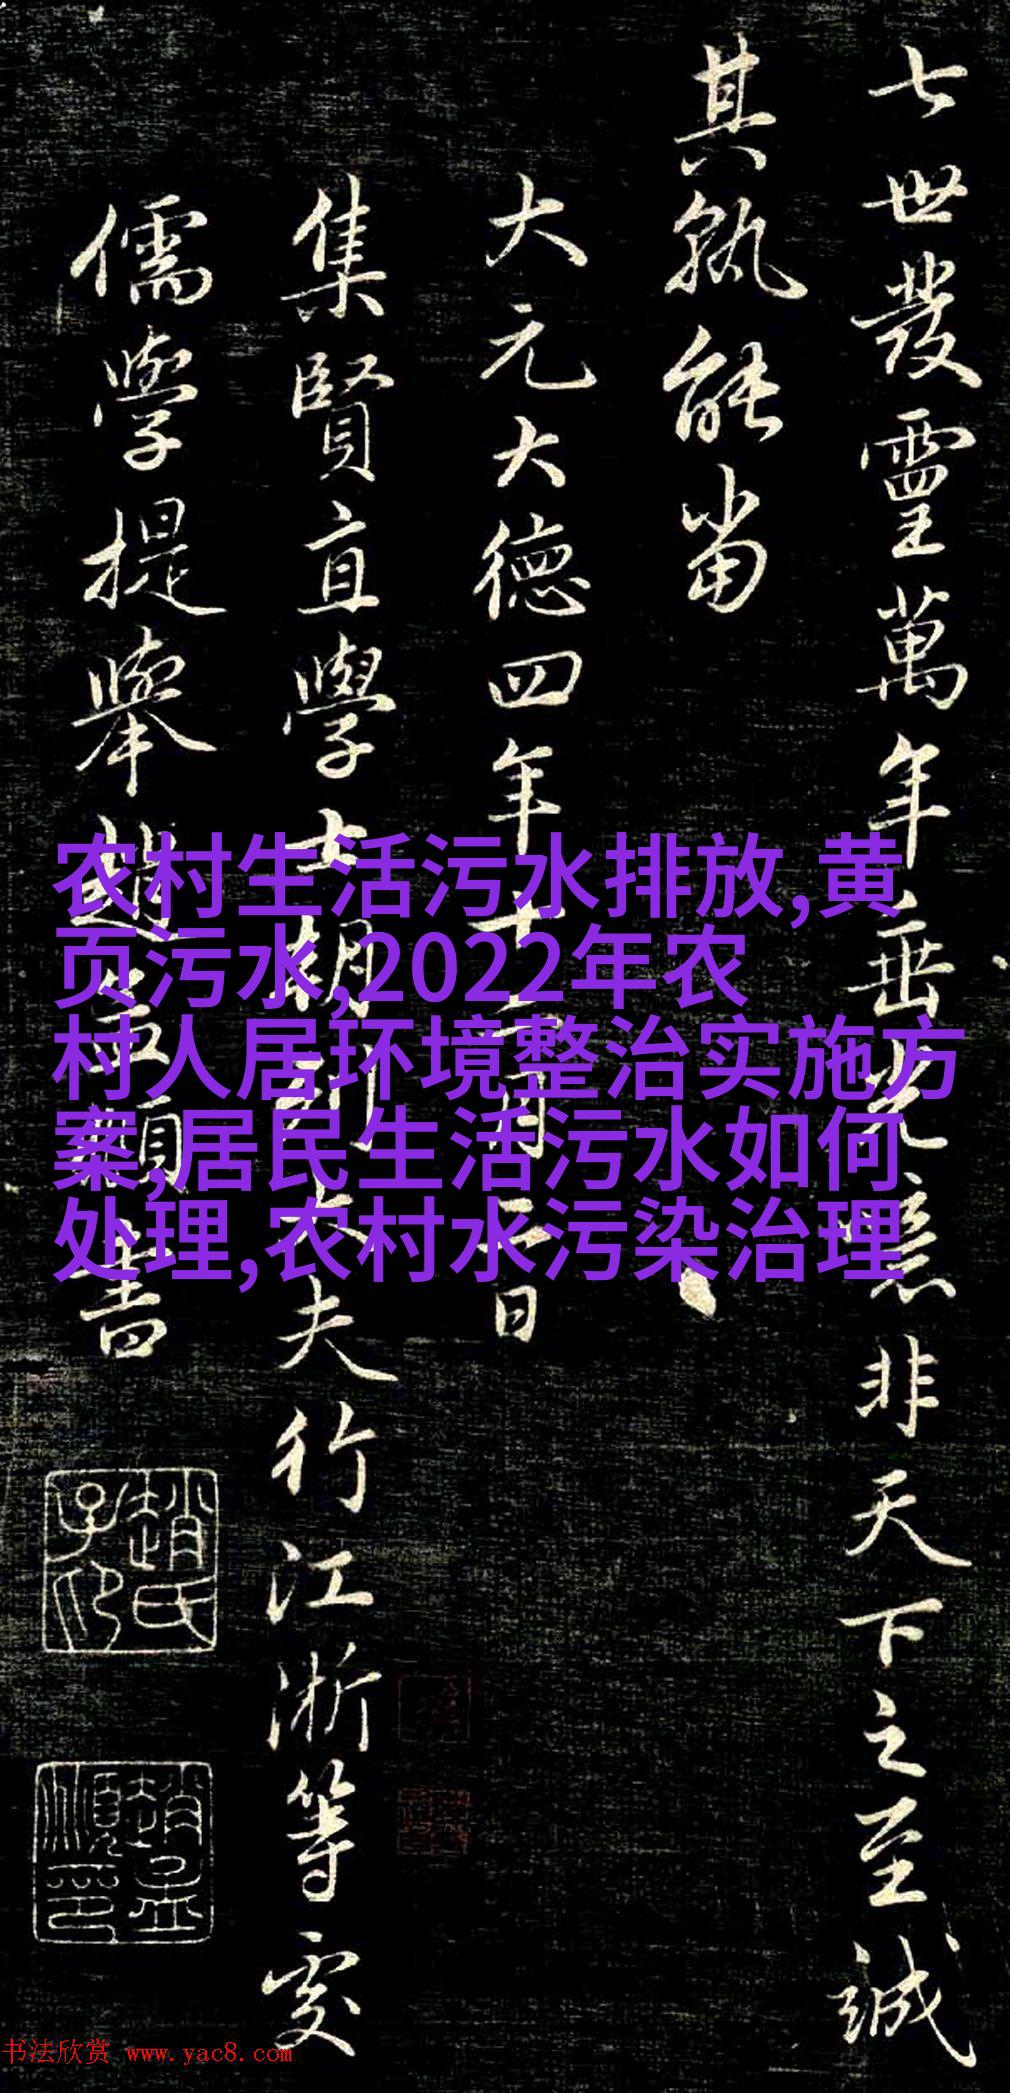 七世發靈萬年垂光非天下之至誠
其孰能當
大元大德四年十月日
集賢直學士朝列大夫行江浙等處
儒學提舉趙孟頫書
农村生活污水排放,黄
页污水,2022年农
村人居环境整治实施方
案,居民生活污水如何
处理,农村水污染治理
趙氏子印
趙孟頫印
书法欣赏 www.yac8.com